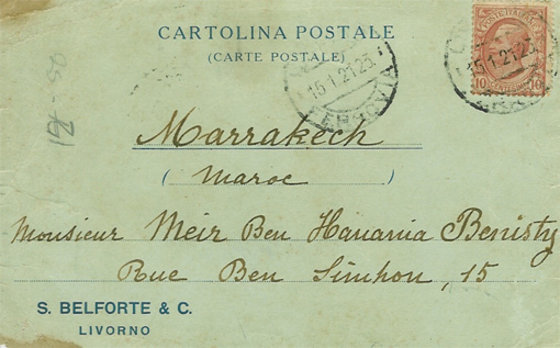 CARTOLINA POSTALE
(CARTE POSTALE)
POSTE ITALIANE
10 CENTESIMI 10
15.1.21 23
FERROVIA
15.1.21 23
Marrakech
(Maroc)
Monsieur Meir Ben Hanania Benisty
Rue Ben Simhon, 15
S. BELFORTE & C.
LIVORNO